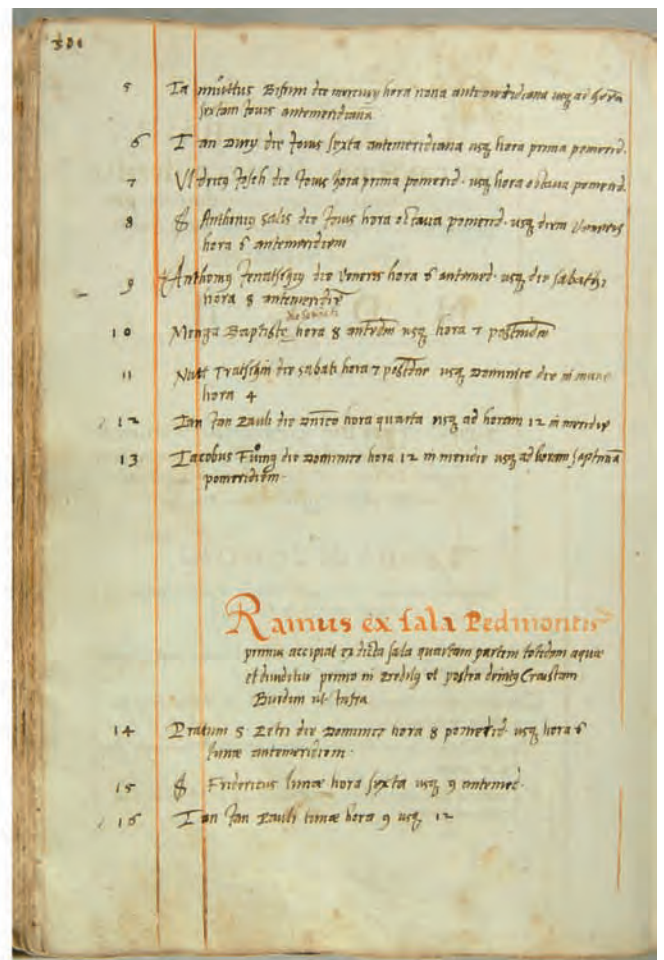 5 Ia nuttus Bifrun die mercurij hora nona antemeridiana usq ad horā
sextam Jouis antemeridianā
6 Ian Dury die Jouis sexta antemeridiana usq hora prima pomerid.
7 Uldricq Joseh die Jouis hora prima pomerid. usq hora octaua pomerid.
8 Anthonius Salis die Jouis hora octaua pomerid. usq diem Veneris
hora 6 antemeridiem
9 Anthonius Jenatschius die veneris hora 6 antemed. usq die sabathi
hora 8 antemeridiē
die sabati
10 Menga Baptiste hora 8 usq hora 7
11 Nutt Tratschin die sabati hora 7 usq Dominico die in mane
hora 4
12 Ian Jan Pauli die hora quarta usq ad horam 12 in meridie
13 Iacobus die Dominico hora 12 in meridie usq ad horam septimā
pomeridiem.
Ramus ex sala Pedmontis
primus accipiat ex dicta sala quartam partem totidem aquae
et diuiditur primo in et postea Craistam
Burdun ut infra
14 Pratum S Petri die Dominico hora 8 pomerid. usq hora 6
lunae antemeridiem.
15 Fridericus lunae hora sexta usq 9 antemed.
16 Ian Jan Pauli lunae hora 9 usq 12